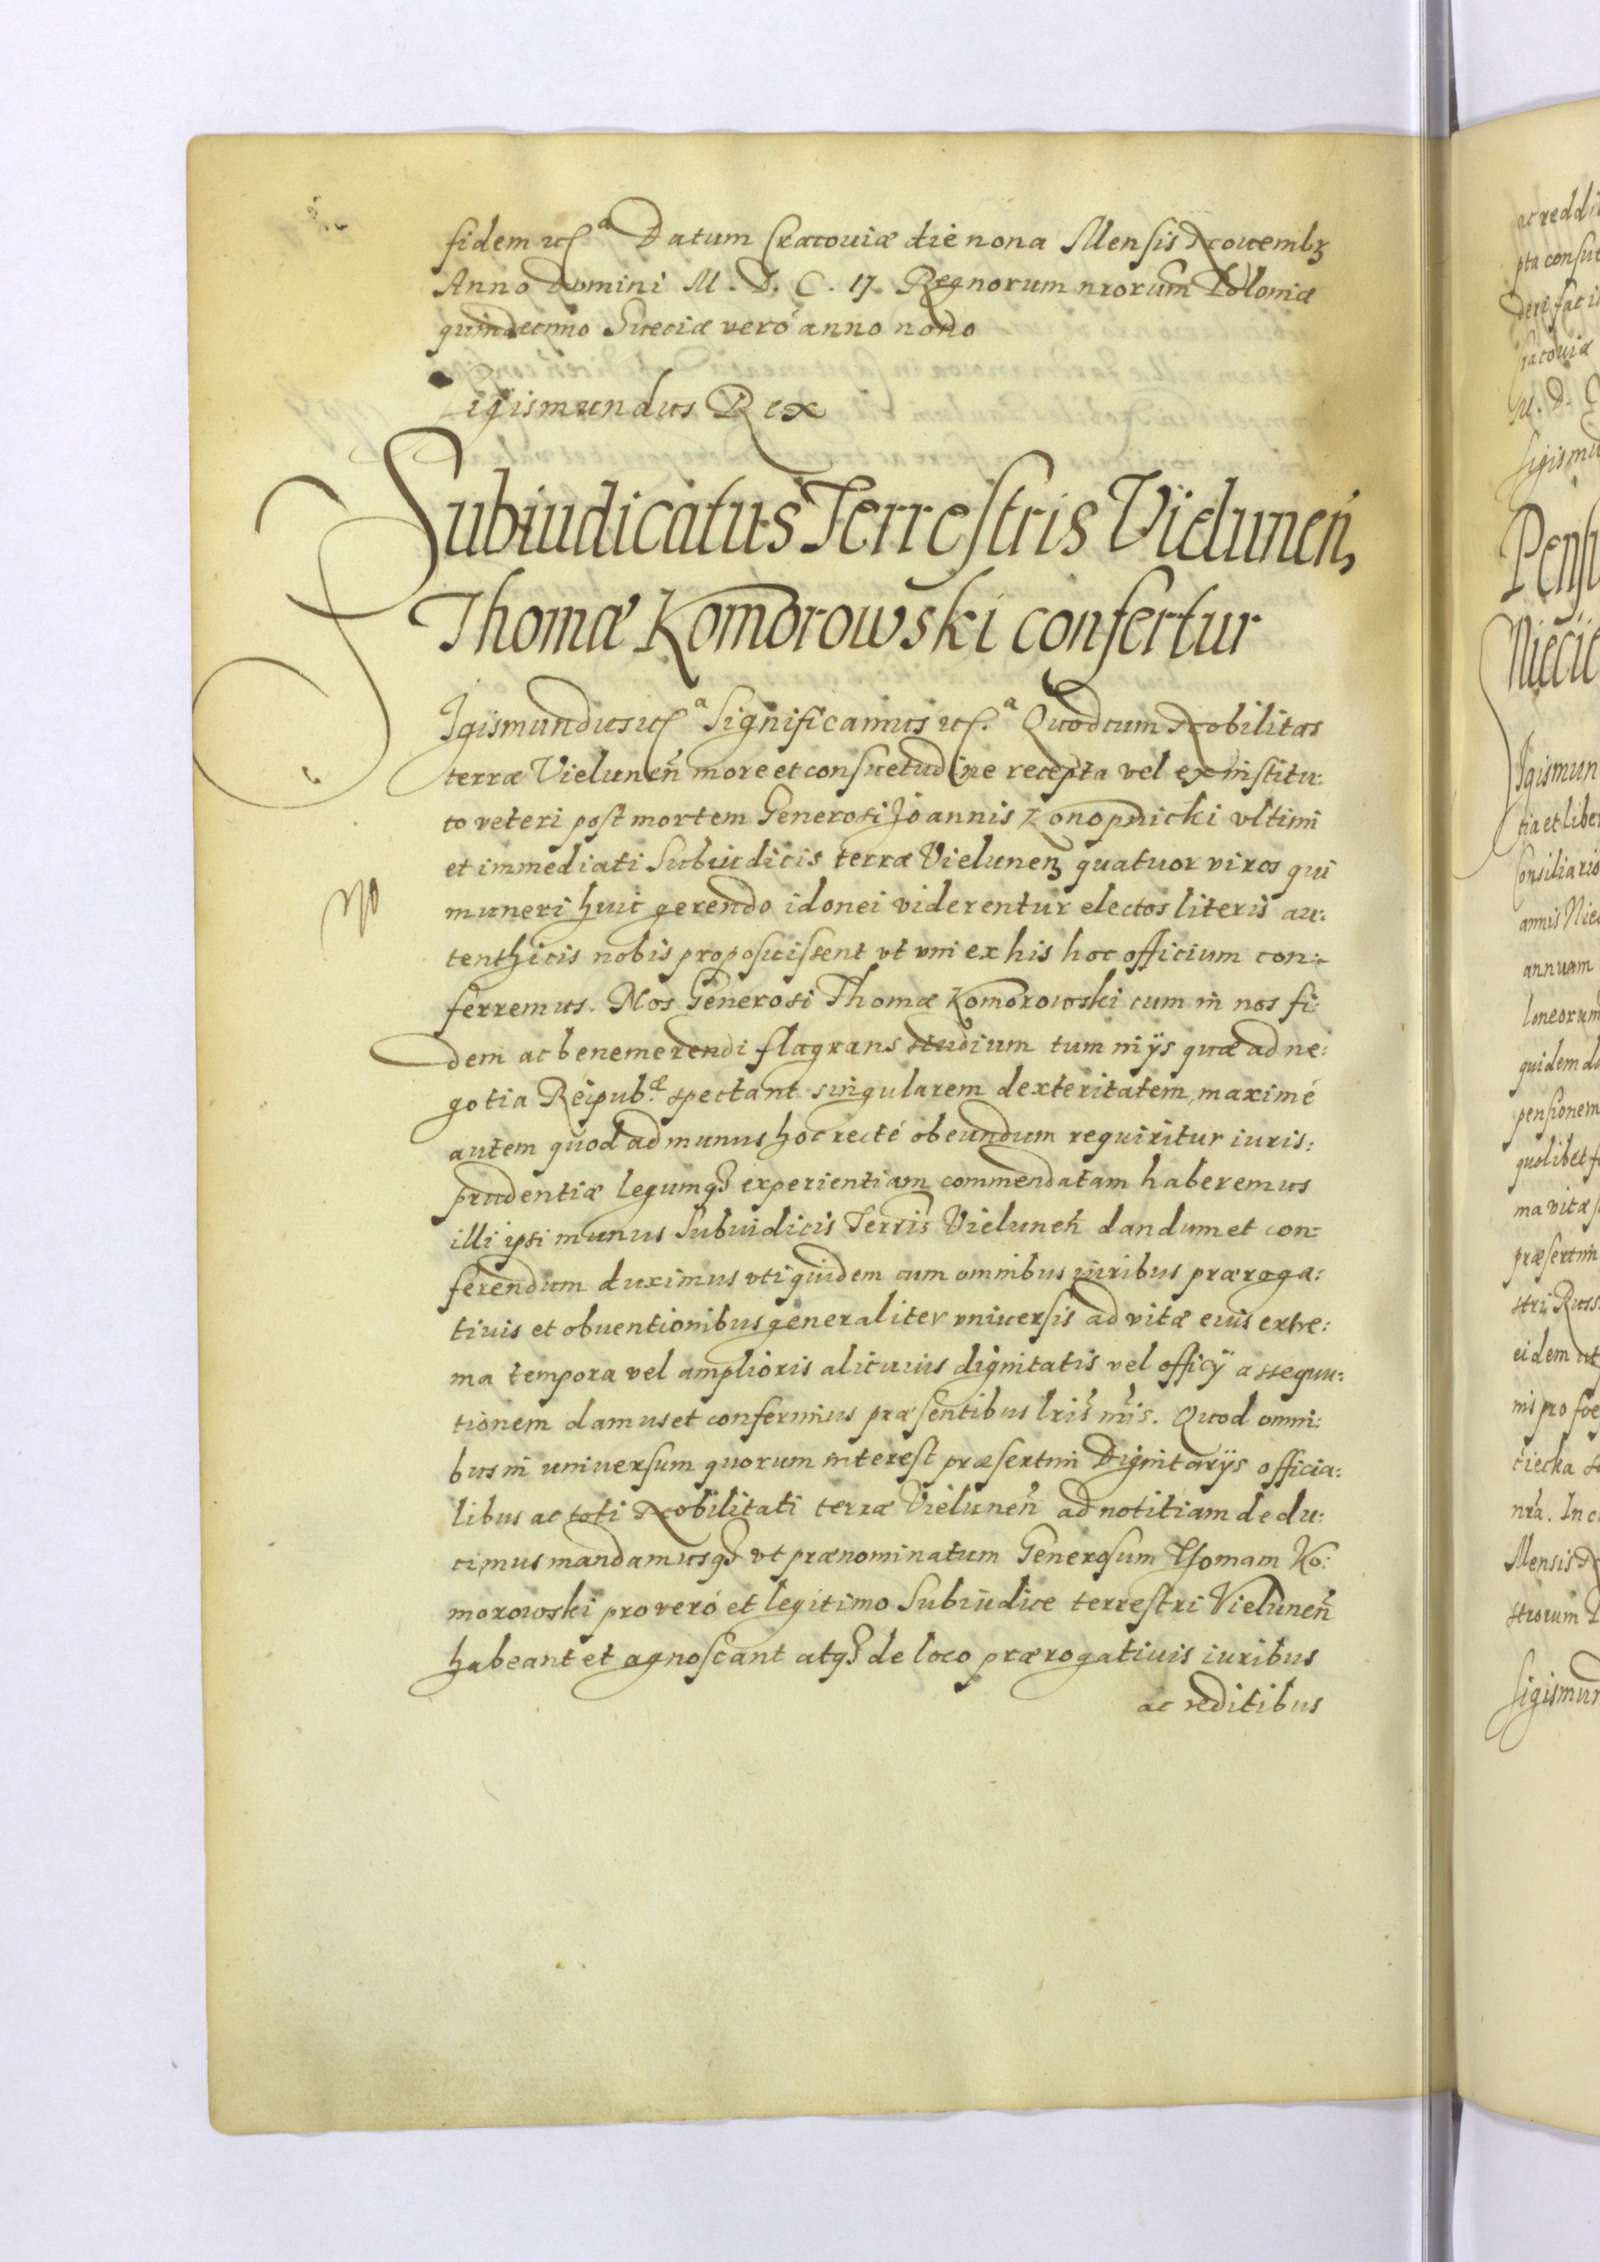 fidem etc.ª Datum Cracouiæ die nona Mensis Nouembr
Anno Domini M. D. C. IJ. Regnorum nrorum Poloniæ
quindecimo Sueciæ veró anno nono
Sigismundus Rex
Subiudicatus Terrestris Vielunen,
Thomæ Komorowski confertur
Igismundus etc.ª Significamus etc.ª Quod cum Nobilitas
terræ Vielunen more et consuetudine recepta vel ex institu:
to veteri post mortem Generosi Joannis Konopnicki vltimi
et immediati Subiudicis terræ Vielunen quatuor viros qui
muneri huic gerendo idonei viderentur electos literis au:
tenthicis nobis proposuissent vt vni ex his hoc officium con:
ferremus. Nos Generosi Thomæ Komorowski cum in nos fi:
dem ac benemerendi flagrans studium tum in ijs quæ ad ne:
gotia Reipub.æ spectant singularem dexteritatem, maximé
autem quod ad munus hoc recté obeundum requiritur iuris:
prudentiæ legumq3 experientiam commendatam haberemus
illi ipsi munus Subiudicis Terris Vielunen dandum et con:
ferendum duximus vti quidem cum omnibus iuribus præroga:
tiuis et obuentionibus generaliter vniuersis ad vitæ eius extre:
ma tempora vel amplioris alicuius dignitatis vel officÿ assequu:
tionem damus et conferimus præsentibus lris nris. Quod omni:
bus in uniuersum quorum interest præsertim Dignitarijs officia:
libus ac toti Nobilitati terræ Vielunen ad notitiam dedu:
cimus mandamusq3 vt prænominatum Generosum Thomam Ko:
morowski pro veró et legitimo Subiudice terrestri Vielunen
habeant et agnoscant atq3 de loco prærogatiuis iuribus
ac reditibus